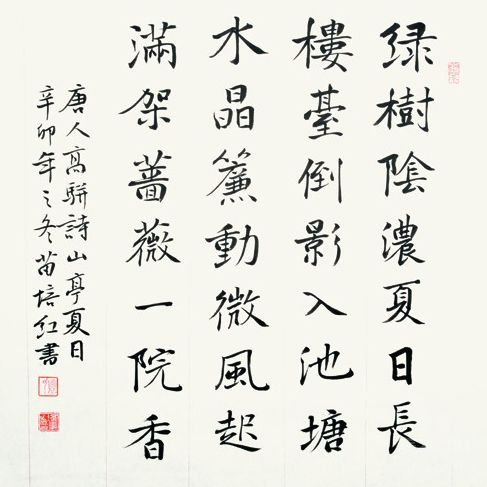 绿樹陰濃夏日長
樓臺倒影入池塘
水晶簾動微風起
滿架薔薇一院香
唐人高駢詩山亭夏日
辛卯年之冬苗培红書